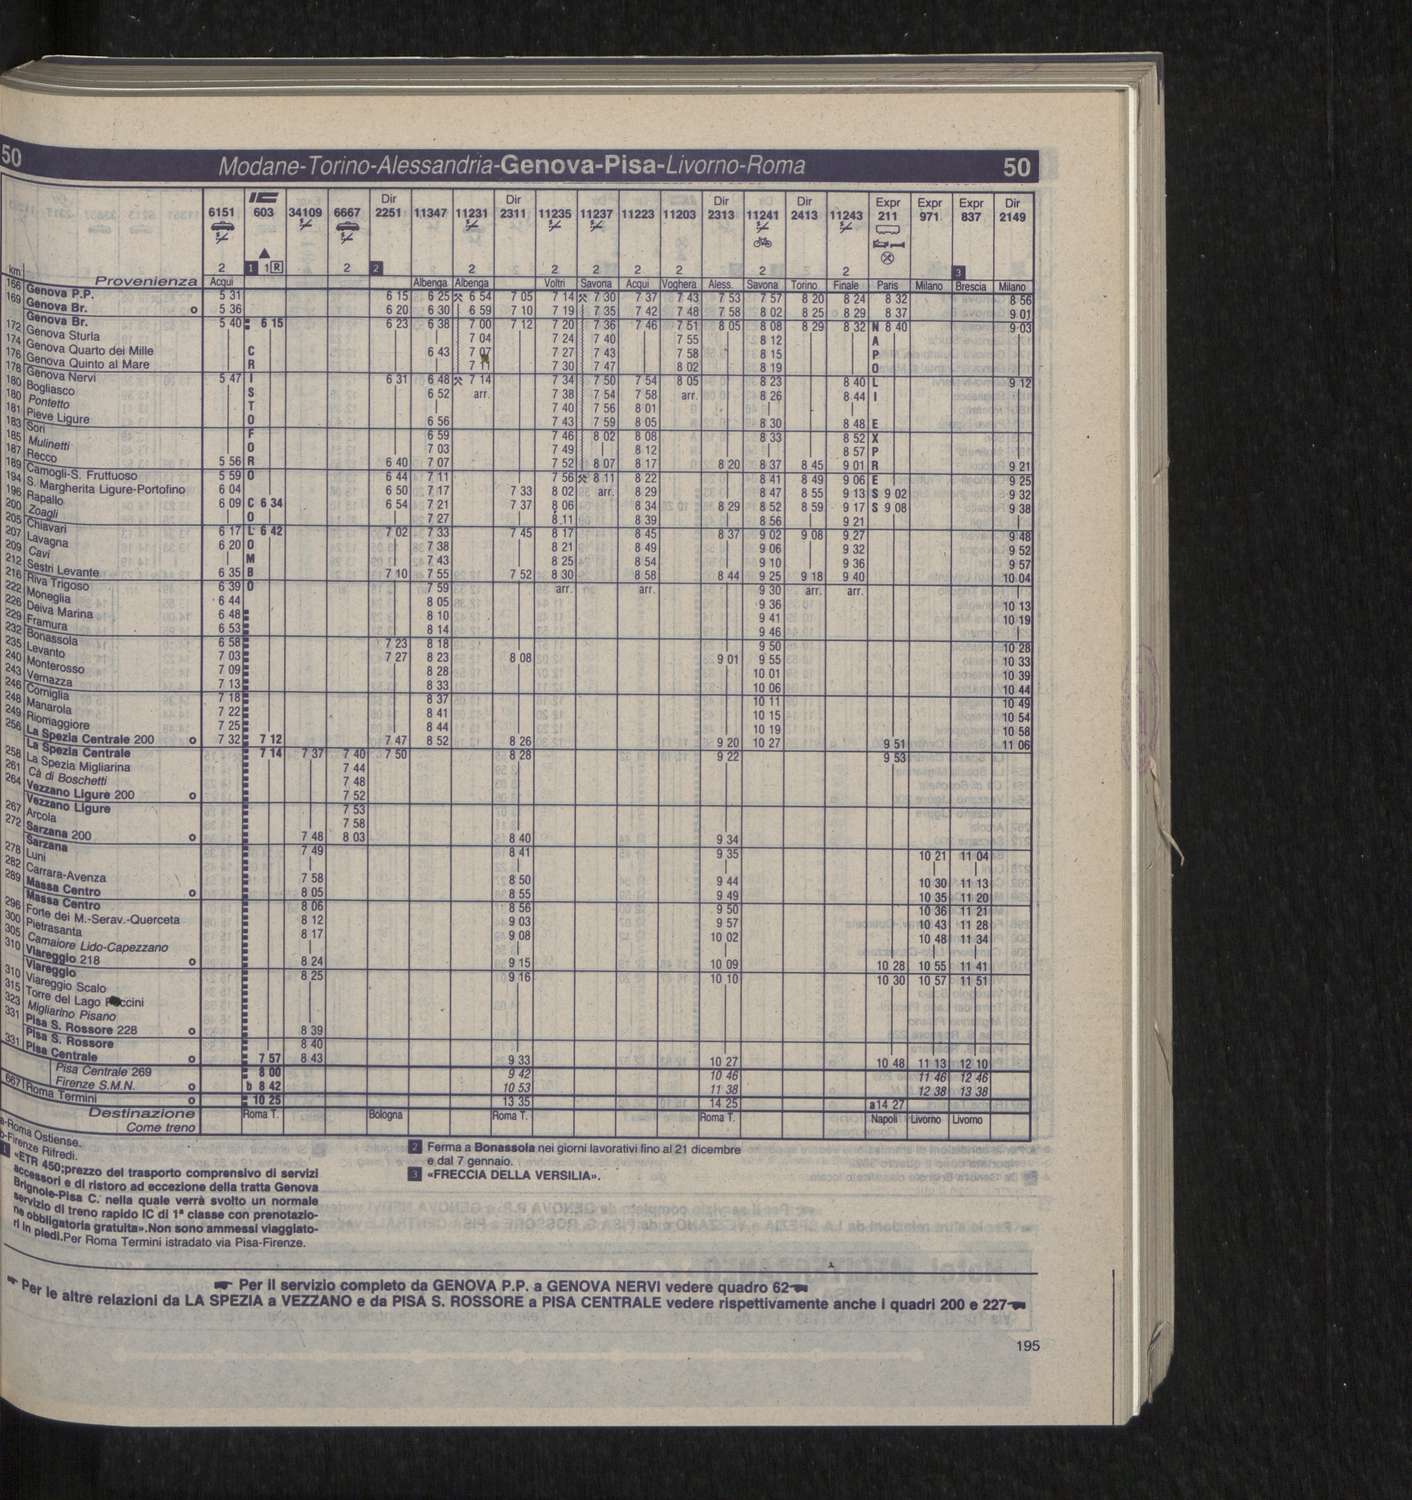 50 Modane-Torino-Alessandria-Genova-Pisa-Livorno-Roma 50
Dir Dir Dir Dir Expr Expr Expr Dir
6151 603 34109 6667 2251 11347 11231 2311 11235 11237 11223 11203 2313 11241 2413 11243 211 971 837 2149
2 1 1 R 2 2 2 2 2 2 2 2 2 3
km Provenienza Acqui Albenga Albenga Voltri Savona Acqui Voghera Aless. Savona Torino Finale Paris Milano Brescia Milano
166 Genova P.P. 5 31 6 15 6 25 6 54 7 05 7 14 7 30 7 37 7 43 7 53 7 57 8 20 8 24 8 32 8 56
169 Genova Br. o 5 36 6 20 6 30 6 59 7 10 7 19 7 35 7 42 7 48 7 58 8 02 8 25 8 29 8 37 9 01
Genova Br. 5 40 6 15 6 23 6 38 7 00 7 12 7 20 7 36 7 46 7 51 8 05 8 08 8 29 8 32 N 8 40 9 03
172 Genova Sturla 7 04 7 24 7 40 7 55 8 12 A
174 Genova Quarto dei Mille C 6 43 7 07 7 27 7 43 7 58 8 15 P
176 Genova Quinto al Mare R 7 11 7 30 7 47 8 02 8 19 O
178 Genova Nervi 5 47 I 6 31 6 48 7 14 7 34 7 50 7 54 8 05 8 23 8 40 L 9 12
180 Bogliasco S 6 52 arr. 7 38 7 54 7 58 arr. 8 26 8 44 I
180 Pontetto T 7 40 7 56 8 01
181 Pieve Ligure O 6 56 7 43 7 59 8 05 8 30 8 48 E
183 Sori F 6 59 7 46 8 02 8 08 8 33 8 52 X
185 Mulinetti O 7 03 7 49 8 12 8 57 P
187 Recco 5 56 R 6 40 7 07 7 52 8 07 8 17 8 20 8 37 8 45 9 01 R 9 21
189 Camogli-S. Fruttuoso 5 59 O 6 44 7 11 7 56 8 11 8 22 8 41 8 49 9 06 E 9 25
194 S. Margherita Ligure-Portofino 6 04 6 50 7 17 7 33 8 02 arr. 8 29 8 47 8 55 9 13 S 9 02 9 32
196 Rapallo 6 09 C 6 34 6 54 7 21 7 37 8 06 8 34 8 29 8 52 8 59 9 17 S 9 08 9 38
200 Zoagli O 7 27 8 11 8 39 8 56 9 21
205 Chiavari 6 17 L 6 42 7 02 7 33 7 45 8 17 8 45 8 37 9 02 9 08 9 27 9 48
207 Lavagna 6 20 O 7 38 8 21 8 49 9 06 9 32 9 52
209 Cavi M 7 43 8 25 8 54 9 10 9 36 9 57
212 Sestri Levante 6 35 B 7 10 7 55 7 52 8 30 8 58 8 44 9 25 9 18 9 40 10 04
216 Riva Trigoso 6 39 O 7 59 arr. arr. 9 30 arr. arr.
222 Moneglia 6 44 8 05 9 36 10 13
226 Deiva Marina 6 48 8 10 9 41 10 19
229 Framura 6 53 8 14 9 46
232 Bonassola 6 58 7 23 8 18 9 50 10 28
235 Levanto 7 03 7 27 8 23 8 08 9 01 9 55 10 33
240 Monterosso 7 09 8 28 10 01 10 39
243 Vernazza 7 13 8 33 10 06 10 44
246 Corniglia 7 18 8 37 10 11 10 49
248 Manarola 7 22 8 41 10 15 10 54
249 Riomaggiore 7 25 8 44 10 19 10 58
256 La Spezia Centrale 200 o 7 32 7 12 7 47 8 52 8 26 9 20 10 27 9 51 11 06
La Spezia Centrale 7 14 7 37 7 40 7 50 8 28 9 22 9 53
258 La Spezia Migliarina 7 44
261 Cà di Boschetti 7 48
264 Vezzano Ligure 200 o 7 52
Vezzano Ligure 7 53
267 Arcola 7 58
272 Sarzana 200 o 7 48 8 03 8 40 9 34
Sarzana 7 49 8 41 9 35 10 21 11 04
278 Luni
282 Carrara-Avenza 7 58 8 50 9 44 10 30 11 13
289 Massa Centro o 8 05 8 55 9 49 10 35 11 20
Massa Centro 8 06 8 56 9 50 10 36 11 21
296 Forte dei M.-Serav.-Querceta 8 12 9 03 9 57 10 43 11 28
300 Pietrasanta 8 17 9 08 10 02 10 48 11 34
305 Camaiore Lido-Capezzano
310 Viareggio 218 o 8 24 9 15 10 09 10 28 10 55 11 41
Viareggio 8 25 9 16 10 10 10 30 10 57 11 51
310 Viareggio Scalo
315 Torre del Lago Puccini
323 Migliarino Pisano
331 Pisa S. Rossore 228 o 8 39
Pisa S. Rossore 8 40
331 Pisa Centrale o 7 57 8 43 9 33 10 27 10 48 11 13 12 10
Pisa Centrale 269 8 00 9 42 10 46 11 46 12 46
Firenze S.M.N. o b 8 42 10 53 11 38 12 38 13 38
667 Roma Termini o 10 25 13 35 14 25 a14 27
Destinazione Roma T. Bologna Roma T. Roma T. Napoli Livorno Livorno
Come treno
a-Roma Ostiense.
b-Firenze Rifredi.
1 «ETR 450;prezzo del trasporto comprensivo di servizi
accessori e di ristoro ad eccezione della tratta Genova
Brignole-Pisa C. nella quale verrà svolto un normale
servizio di treno rapido IC di 1ª classe con prenotazio-
ne obbligatoria gratuita».Non sono ammessi viaggiato-
ri in piedi.Per Roma Termini istradato via Pisa-Firenze.
2 Ferma a Bonassola nei giorni lavorativi fino al 21 dicembre
e dal 7 gennaio.
3 «FRECCIA DELLA VERSILIA».
Per il servizio completo da GENOVA P.P. a GENOVA NERVI vedere quadro 62
Per le altre relazioni da LA SPEZIA a VEZZANO e da PISA S. ROSSORE a PISA CENTRALE vedere rispettivamente anche i quadri 200 e 227
195